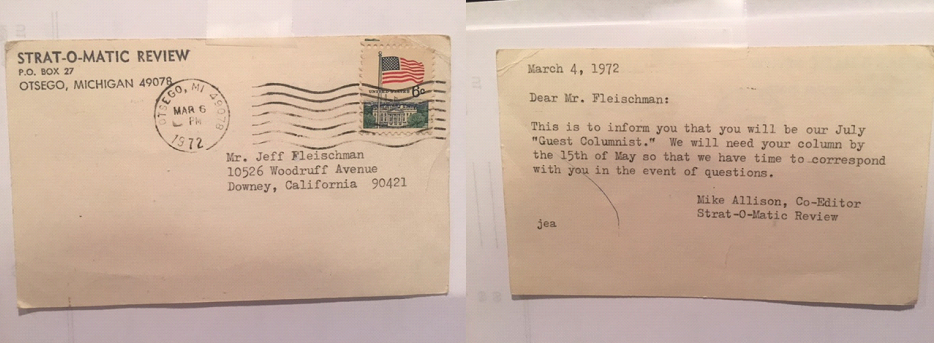 STRAT-O-MATIC REVIEW
P.O. BOX 27
OTSEGO, MICHIGAN 49078
OTSEGO, MI 49078
MAR 6
PM
1972
UNITED STATES 6c
Mr. Jeff Fleischman
10526 Woodruff Avenue
Downey, California 90421
March 4, 1972
Dear Mr. Fleischman:
This is to inform you that you will be our July
"Guest Columnist." We will need your column by
the 15th of May so that we have time to correspond
with you in the event of questions.
Mike Allison, Co-Editor
Strat-O-Matic Review
jea